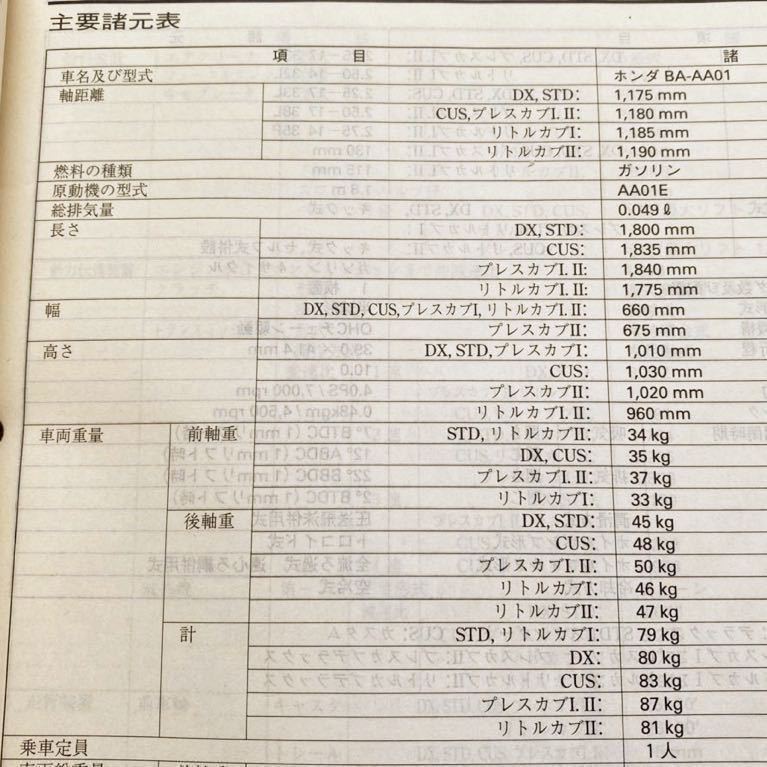 主要諸元表
項 目 諸
車名及び型式 ホンダ BA-AA01
軸距離 DX, STD: 1,175 mm
CUS,プレスカブI. II: 1,180 mm
リトルカブI: 1,185 mm
リトルカブII: 1,190 mm
燃料の種類 ガソリン
原動機の型式 AA01E
総排気量 0.049 ℓ
長さ DX, STD: 1,800 mm
CUS: 1,835 mm
プレスカブI. II: 1,840 mm
リトルカブI. II: 1,775 mm
幅 DX, STD, CUS,プレスカブI, リトルカブI. II: 660 mm
プレスカブII: 675 mm
高さ DX, STD,プレスカブI: 1,010 mm
CUS: 1,030 mm
プレスカブII: 1,020 mm
リトルカブI. II: 960 mm
車両重量 前軸重 STD, リトルカブII: 34 kg
DX, CUS: 35 kg
プレスカブI. II: 37 kg
リトルカブI: 33 kg
後軸重 DX, STD: 45 kg
CUS: 48 kg
プレスカブI. II: 50 kg
リトルカブI: 46 kg
リトルカブII: 47 kg
計 STD, リトルカブI: 79 kg
DX: 80 kg
CUS: 83 kg
プレスカブI. II: 87 kg
リトルカブII: 81 kg
乗車定員 1人